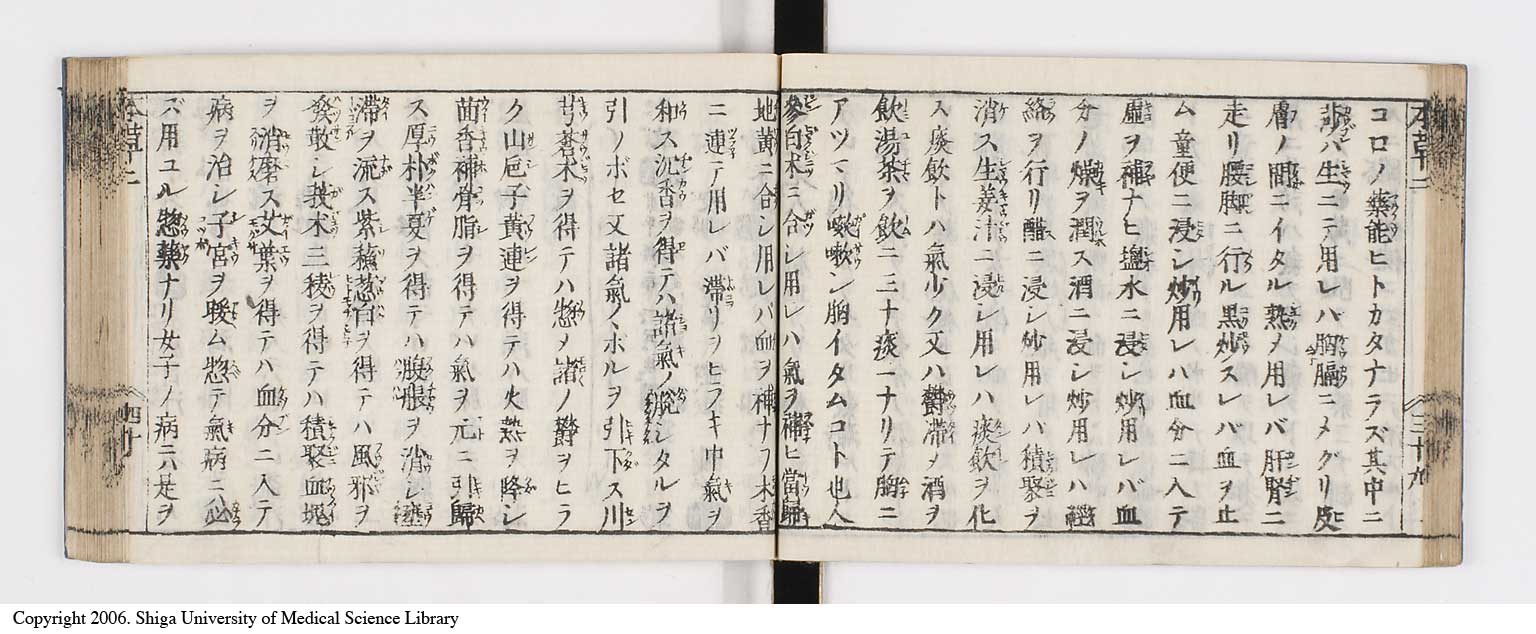 本草十二 三十九
コロノ藥能ヒトカタナラズ其中ニ
莎ハ生ニテ用レハ胸膈ニメグリ皮
膚ノ間ニイタル熟メ用レバ肝腎ニ
走リ腰脚ニ行ル黒炒スレバ血ヲ止
ム童便ニ浸シ炒用レハ血分ニ入テ
虚ヲ補ナヒ塩水ニ浸シ炒用レバ血
分ノ燥ヲ潤ス酒ニ浸シ炒用レハ經
絡ヲ行リ醋ニ浸シ炒用レハ積聚ヲ
消ス生姜汁ニ浸シ用レハ痰飲ヲ化
ス痰飲トハ氣少ク又ハ欝滞メ酒ヲ
飲湯茶ヲ飲ニ三十痰一ナリテ胸ニ
アツマリ咳嗽シ胸イタムコト也人
參白朮ニ合シ用レハ氣ヲ補ヒ當歸
地黄ニ合シ用レバ血ヲ補ナフ木香
ニ連テ用レバ滞リヲヒラキ中氣ヲ
和ス沉香ヲ得テハ諸氣ノ シタルヲ
引ノボセ又諸氣ノ丶ボルヲ引下ス川
芎蒼朮ヲ得テハ惣ノ諸ノ欝ヲヒラ
ク山巵子黄連ヲ得テハ火熱ヲ降シ
茴香補骨脂ヲ得テハ氣ヲ元ニ引歸
ス厚朴半夏ヲ得テハ腹脹ヲ消シ壅
滞ヲ流ス紫蘓葱白ヲ得テハ風邪ヲ
發散シ莪朮三稜ヲ得テハ積聚血塊
ヲ消磨ス艾葉ヲ得テハ血分ニ入テ
病ヲ治シ子宮ヲ暖ム惣テ氣病ニ必
ズ用ユル惣藥ナリ女子ノ病ニハ是ヲ
本草十二 四十
Copyright 2006. Shiga University of Medical Science Library